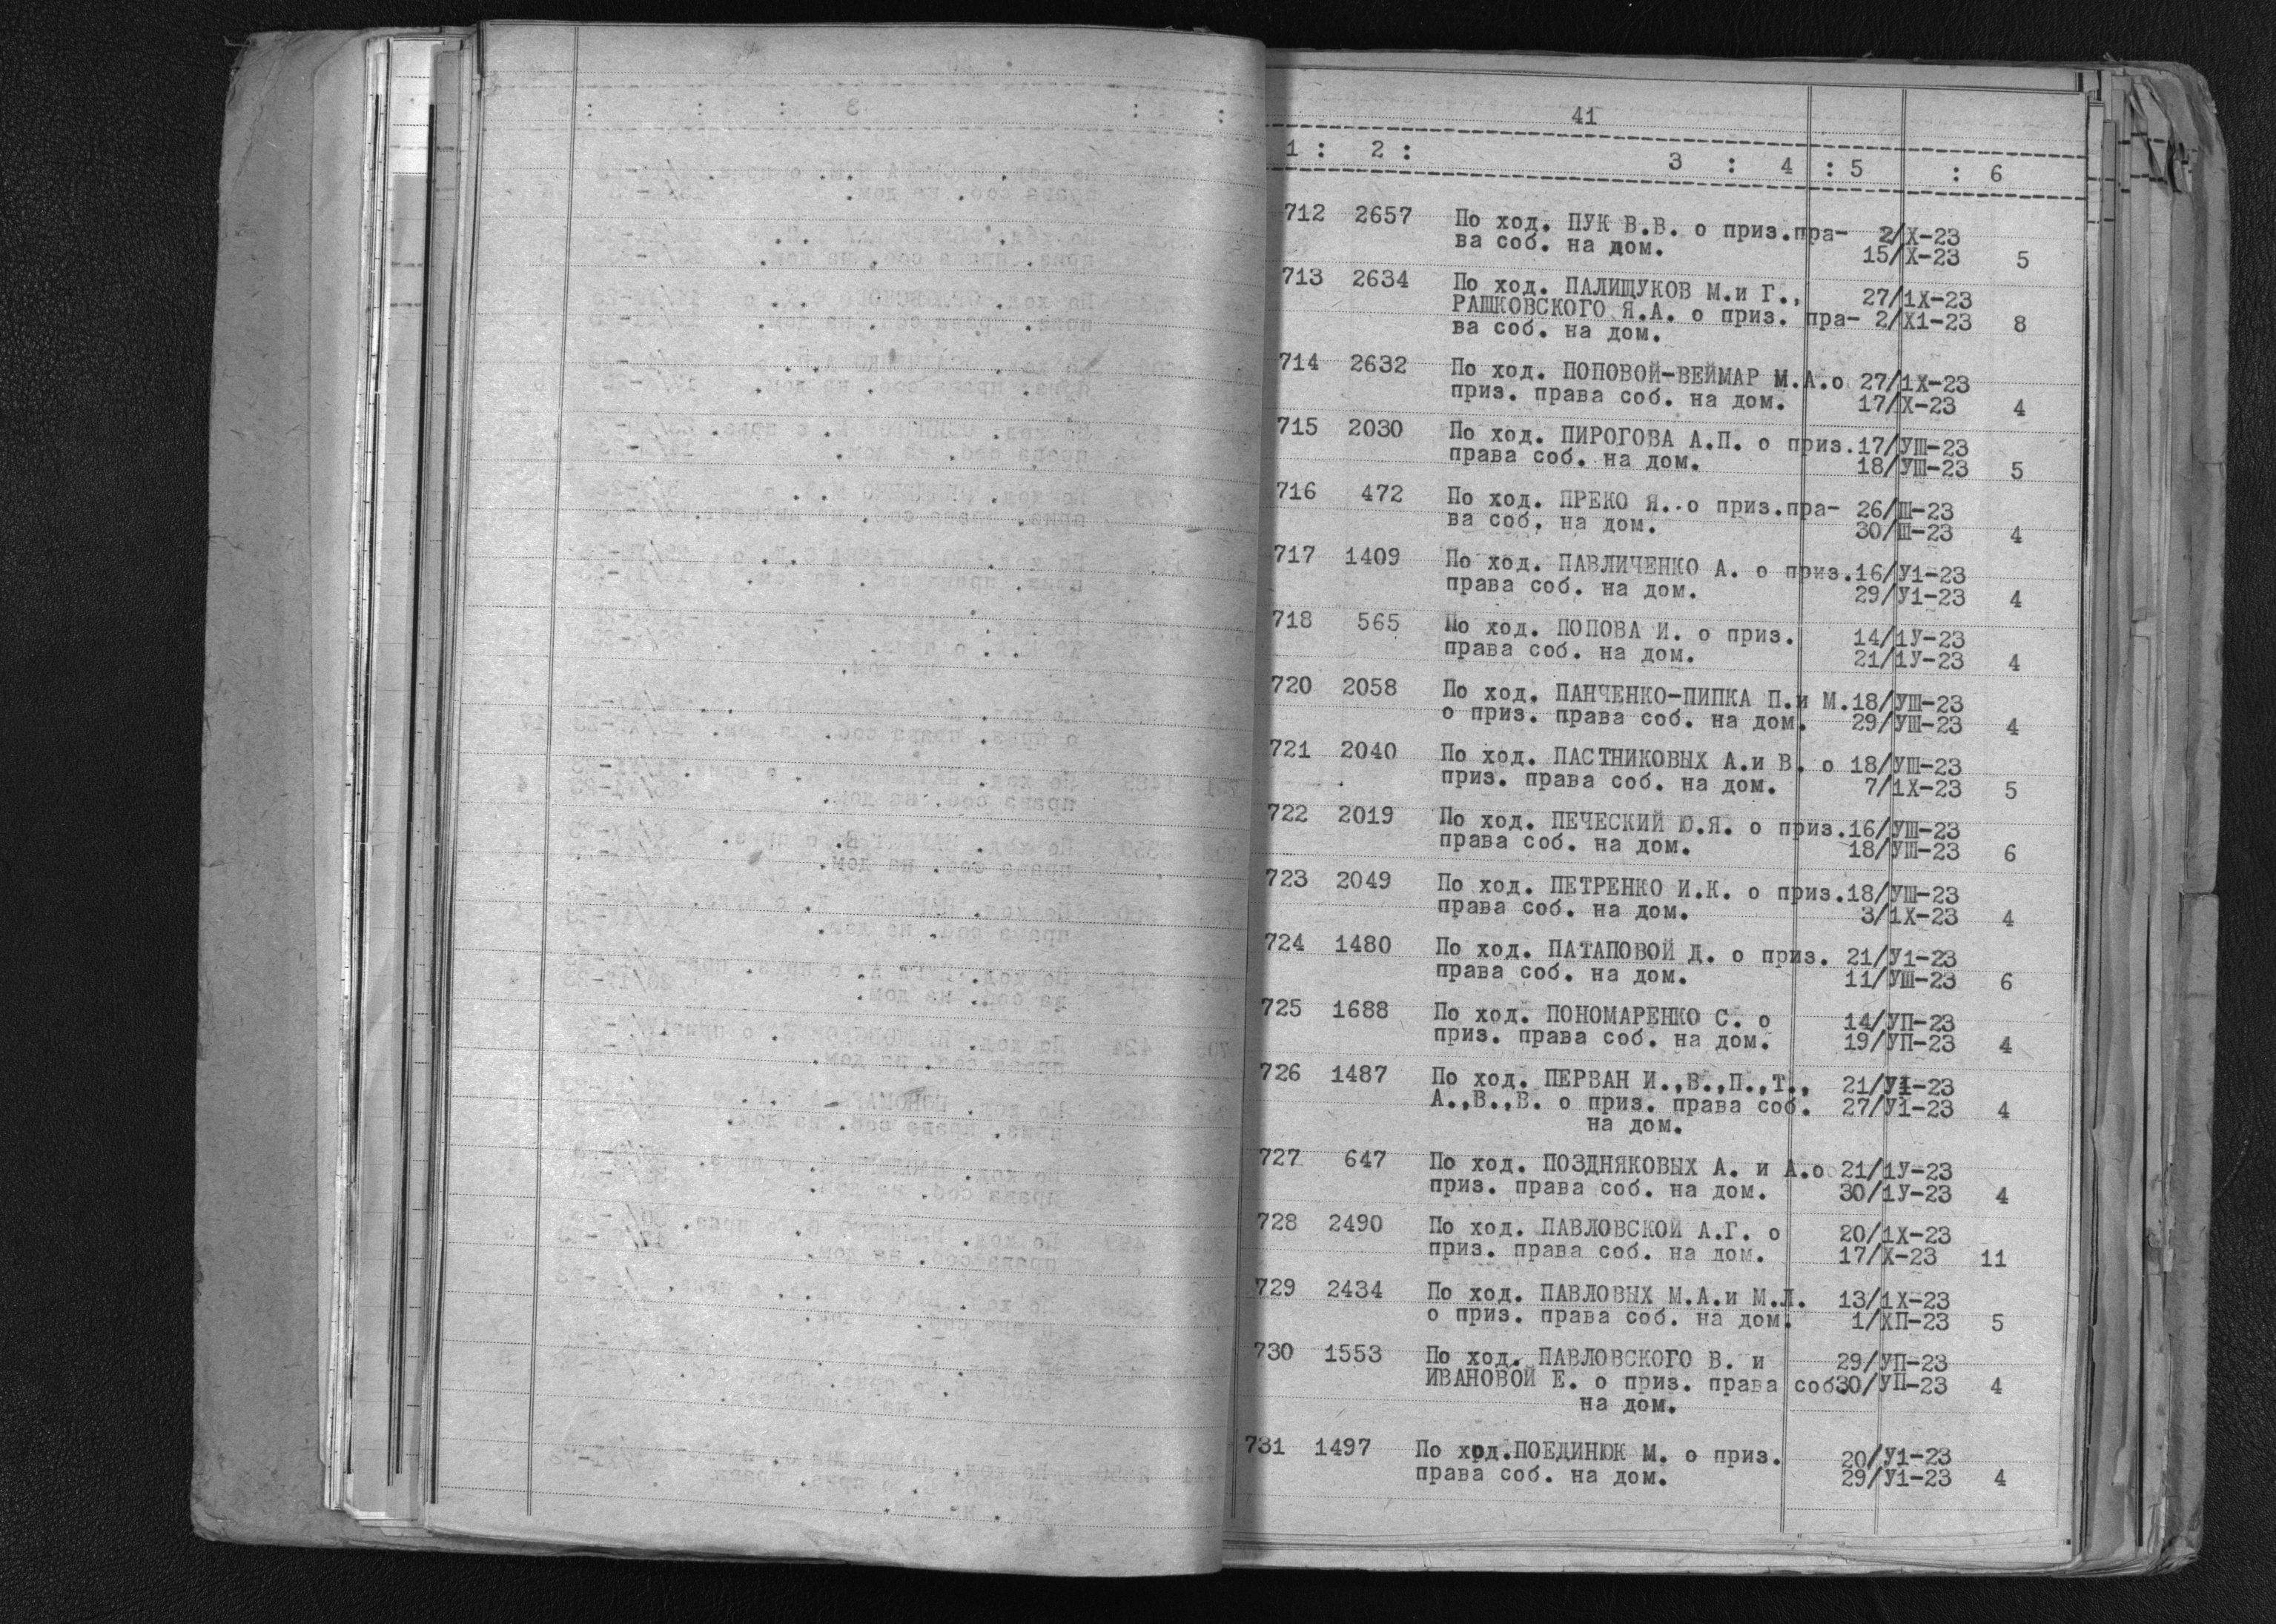 41
1 : 2 : 3 : 4 : 5 : 6
712 2657 По ход. ПУК В.В. о приз.пра- 2/Х-23
ва соб. на дом. 15/Х-23 5
713 2634 По ход. ПАЛИЩУКОВ М.и Г., 27/1Х-23
РАШКОВСКОГО Я.А. о приз. пра- 2/Х1-23 8
ва соб. на дом.
714 2632 По ход. ПОПОВОЙ-ВЕЙМАР М.А.о 27/1Х-23
приз. права соб. на дом. 17/Х-23 4
715 2030 По ход. ПИРОГОВА А.П. о приз.17/УШ-23
права соб. на дом. 18/УШ-23 5
716 472 По ход. ПРЕКО Я. о приз.пра- 26/Ш-23
ва соб. на дом. 30/Ш-23 4
717 1409 По ход. ПАВЛИЧЕНКО А. о приз.16/У1-23
права соб. на дом. 29/У1-23 4
718 565 По ход. ПОПОВА И. о приз. 14/1У-23
права соб. на дом. 21/1У-23 4
720 2058 По ход. ПАНЧЕНКО-ПИПКА П.и М.18/УШ-23
о приз. права соб. на дом. 29/УШ-23 4
721 2040 По ход. ПАСТНИКОВЫХ А.и В. о 18/УШ-23
приз. права соб. на дом. 7/1Х-23 5
722 2019 По ход. ПЕЧЕСКИЙ Ю.Я. о приз.16/УШ-23
права соб. на дом. 18/УШ-23 6
723 2049 По ход. ПЕТРЕНКО И.К. о приз.18/УШ-23
права соб. на дом. 3/1Х-23 4
724 1480 По ход. ПАТАПОВОЙ Д. о приз. 21/У1-23
права соб. на дом. 11/УШ-23 6
725 1688 По ход. ПОНОМАРЕНКО С. о 14/УП-23
приз. права соб. на дом. 19/УП-23 4
726 1487 По ход. ПЕРВАН И.,В.,П.,Т., 21/У1-23
А.,В.,В. о приз. права соб. 27/У1-23 4
на дом.
727 647 По ход. ПОЗДНЯКОВЫХ А. и А.о 21/1У-23
приз. права соб. на дом. 30/1У-23 4
728 2490 По ход. ПАВЛОВСКОЙ А.Г. о 20/1Х-23
приз. права соб. на дом. 17/Х-23 11
729 2434 По ход. ПАВЛОВЫХ М.А.и М.Л. 13/1Х-23
о приз. права соб. на дом. 1/ХП-23 5
730 1553 По ход. ПАВЛОВСКОГО В. и 29/УП-23
ИВАНОВОЙ Е. о приз. права соб.30/УП-23 4
на дом.
731 1497 По ход.ПОЕДИНЮК М. о приз. 20/У1-23
права соб. на дом. 29/У1-23 4